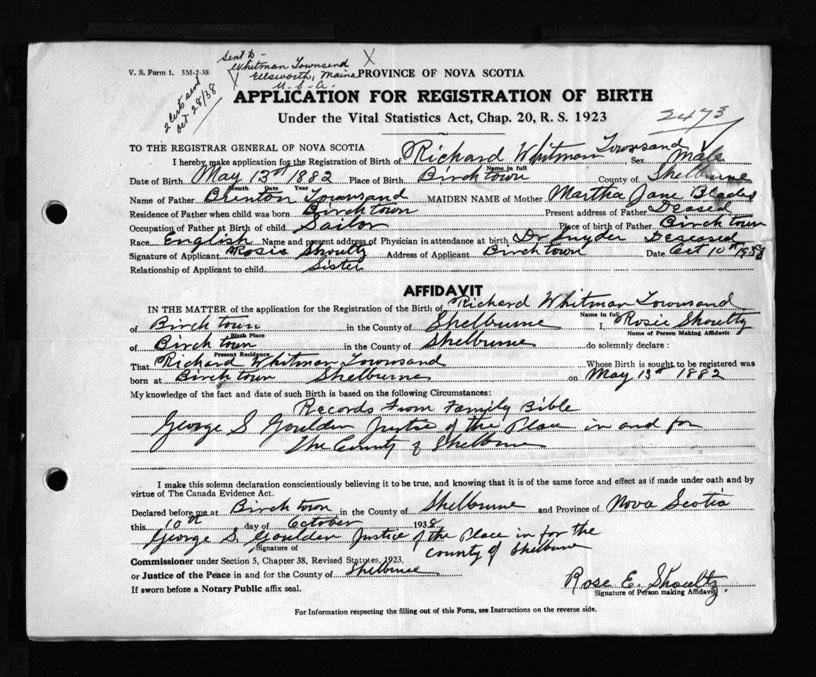 V. S. Form 1. 3M-2-38
Sent to -
Whitman Townsend
Ellsworth, Maine
U.S.A.
X
2 certs sent
Oct 28/38
PROVINCE OF NOVA SCOTIA
APPLICATION FOR REGISTRATION OF BIRTH
Under the Vital Statistics Act, Chap. 20, R. S. 1923
2473
TO THE REGISTRAR GENERAL OF NOVA SCOTIA
I hereby make application for the Registration of Birth of Richard Whitman Townsand Sex Male
Name in full
Date of Birth May 13th 1882 Place of Birth Birchtown County of Shelburne
Month Date Year
Name of Father Brenton Townsand MAIDEN NAME of Mother Martha Jane Blades
Residence of Father when child was born Birchtown Present address of Father Deased
Occupation of Father at Birth of child Sailor Place of birth of Father Birchtown
Race English Name and present address of Physician in attendance at birth Dr Snyder Deceased
Signature of Applicant Rosie Shoultz Address of Applicant Birchtown Date Oct 10th 1938
Relationship of Applicant to child Sister
AFFIDAVIT
IN THE MATTER of the application for the Registration of the Birth of Richard Whitman Townsand
Name in full
of Birchtown in the County of Shelburne I, Rosie Shoultz
Birth Place Name of Person Making Affidavit
of Birchtown in the County of Shelburne do solemnly declare:
Present Residence
That Richard Whitman Townsand Whose Birth is sought to be registered was
born at Birchtown Shelburne on May 13th 1882
My knowledge of the fact and date of such Birth is based on the following Circumstances:
Records From Family Bible
George S Goulden Justice of the Place in and for
The County of Shelburne
I make this solemn declaration conscientiously believing it to be true, and knowing that it is of the same force and effect as if made under oath and by
virtue of The Canada Evidence Act.
Declared before me at Birchtown in the County of Shelburne and Province of Nova Scotia
this 10th day of October 1938
George S. Goulden Justice of the Place in for the
county of Shelburne
Signature of
Commissioner under Section 5, Chapter 38, Revised Statutes, 1923,
or Justice of the Peace in and for the County of Shelburne
If sworn before a Notary Public affix seal.
Rose E. Shoultz.
Signature of Person making Affidavit
For Information respecting the filling out of this Form, see Instructions on the reverse side.